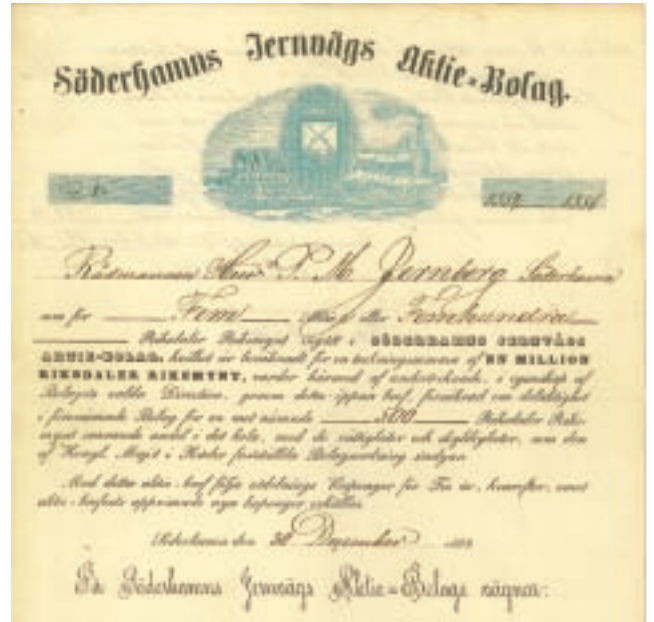 Söderhamns Jernvägs Aktie-Bolag.
Rådmannen Herr P. M. Jernberg Söderhamn
som för Fem aktier eller Femhundra
Riksdaler Riksmynt i SÖDERHAMNS JERNVÄGS
AKTIE-BOLAG, hvilket är beräknadt för en teckningssumma af EN MILLION
RIKSDALER RIKSMYNT, varder härmed af undertecknade, i egenskap af
Bolagets valda Direction, genom detta öppna bref, försäkrad om delaktighet
i förenämnde Bolag för en mot nämnde 500 Riksdaler Riks-
mynt svarande andel i det hela, med de rättigheter och skyldigheter, som den
af Kongl. Maj:t i Nåder fastställda Bolagsordning stadgar.
Med detta aktie-bref följa utdelnings kuponger för Tio år, hvarefter, emot
aktie-brefvets uppvisande nya kuponger erhållas.
Söderhamn den 30 December
På Söderhamns Jernvägs Aktie-Bolags vägnar: